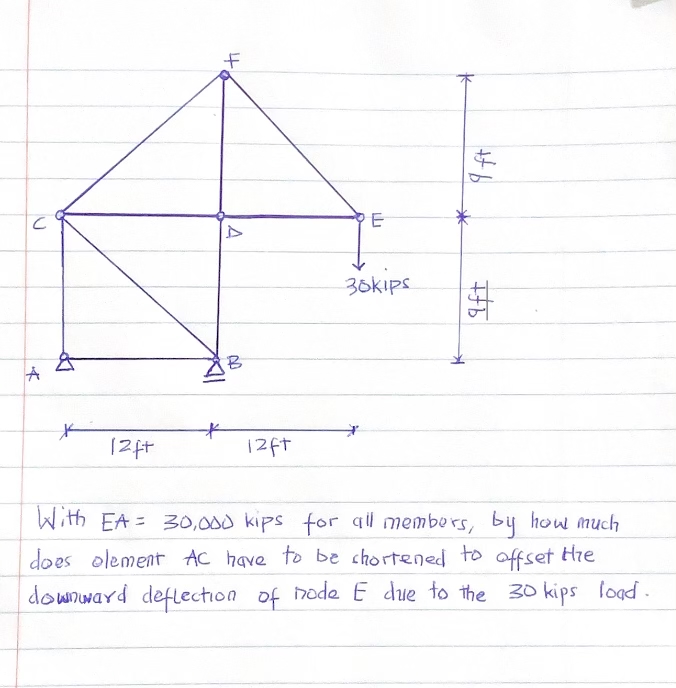 F
9ft
C
D
E
30kips
9ft
A
B
12ft
12ft
With EA = 30,000 kips for all members, by how much
does element AC have to be shortened to offset the
downward deflection of node E due to the 30 kips load.